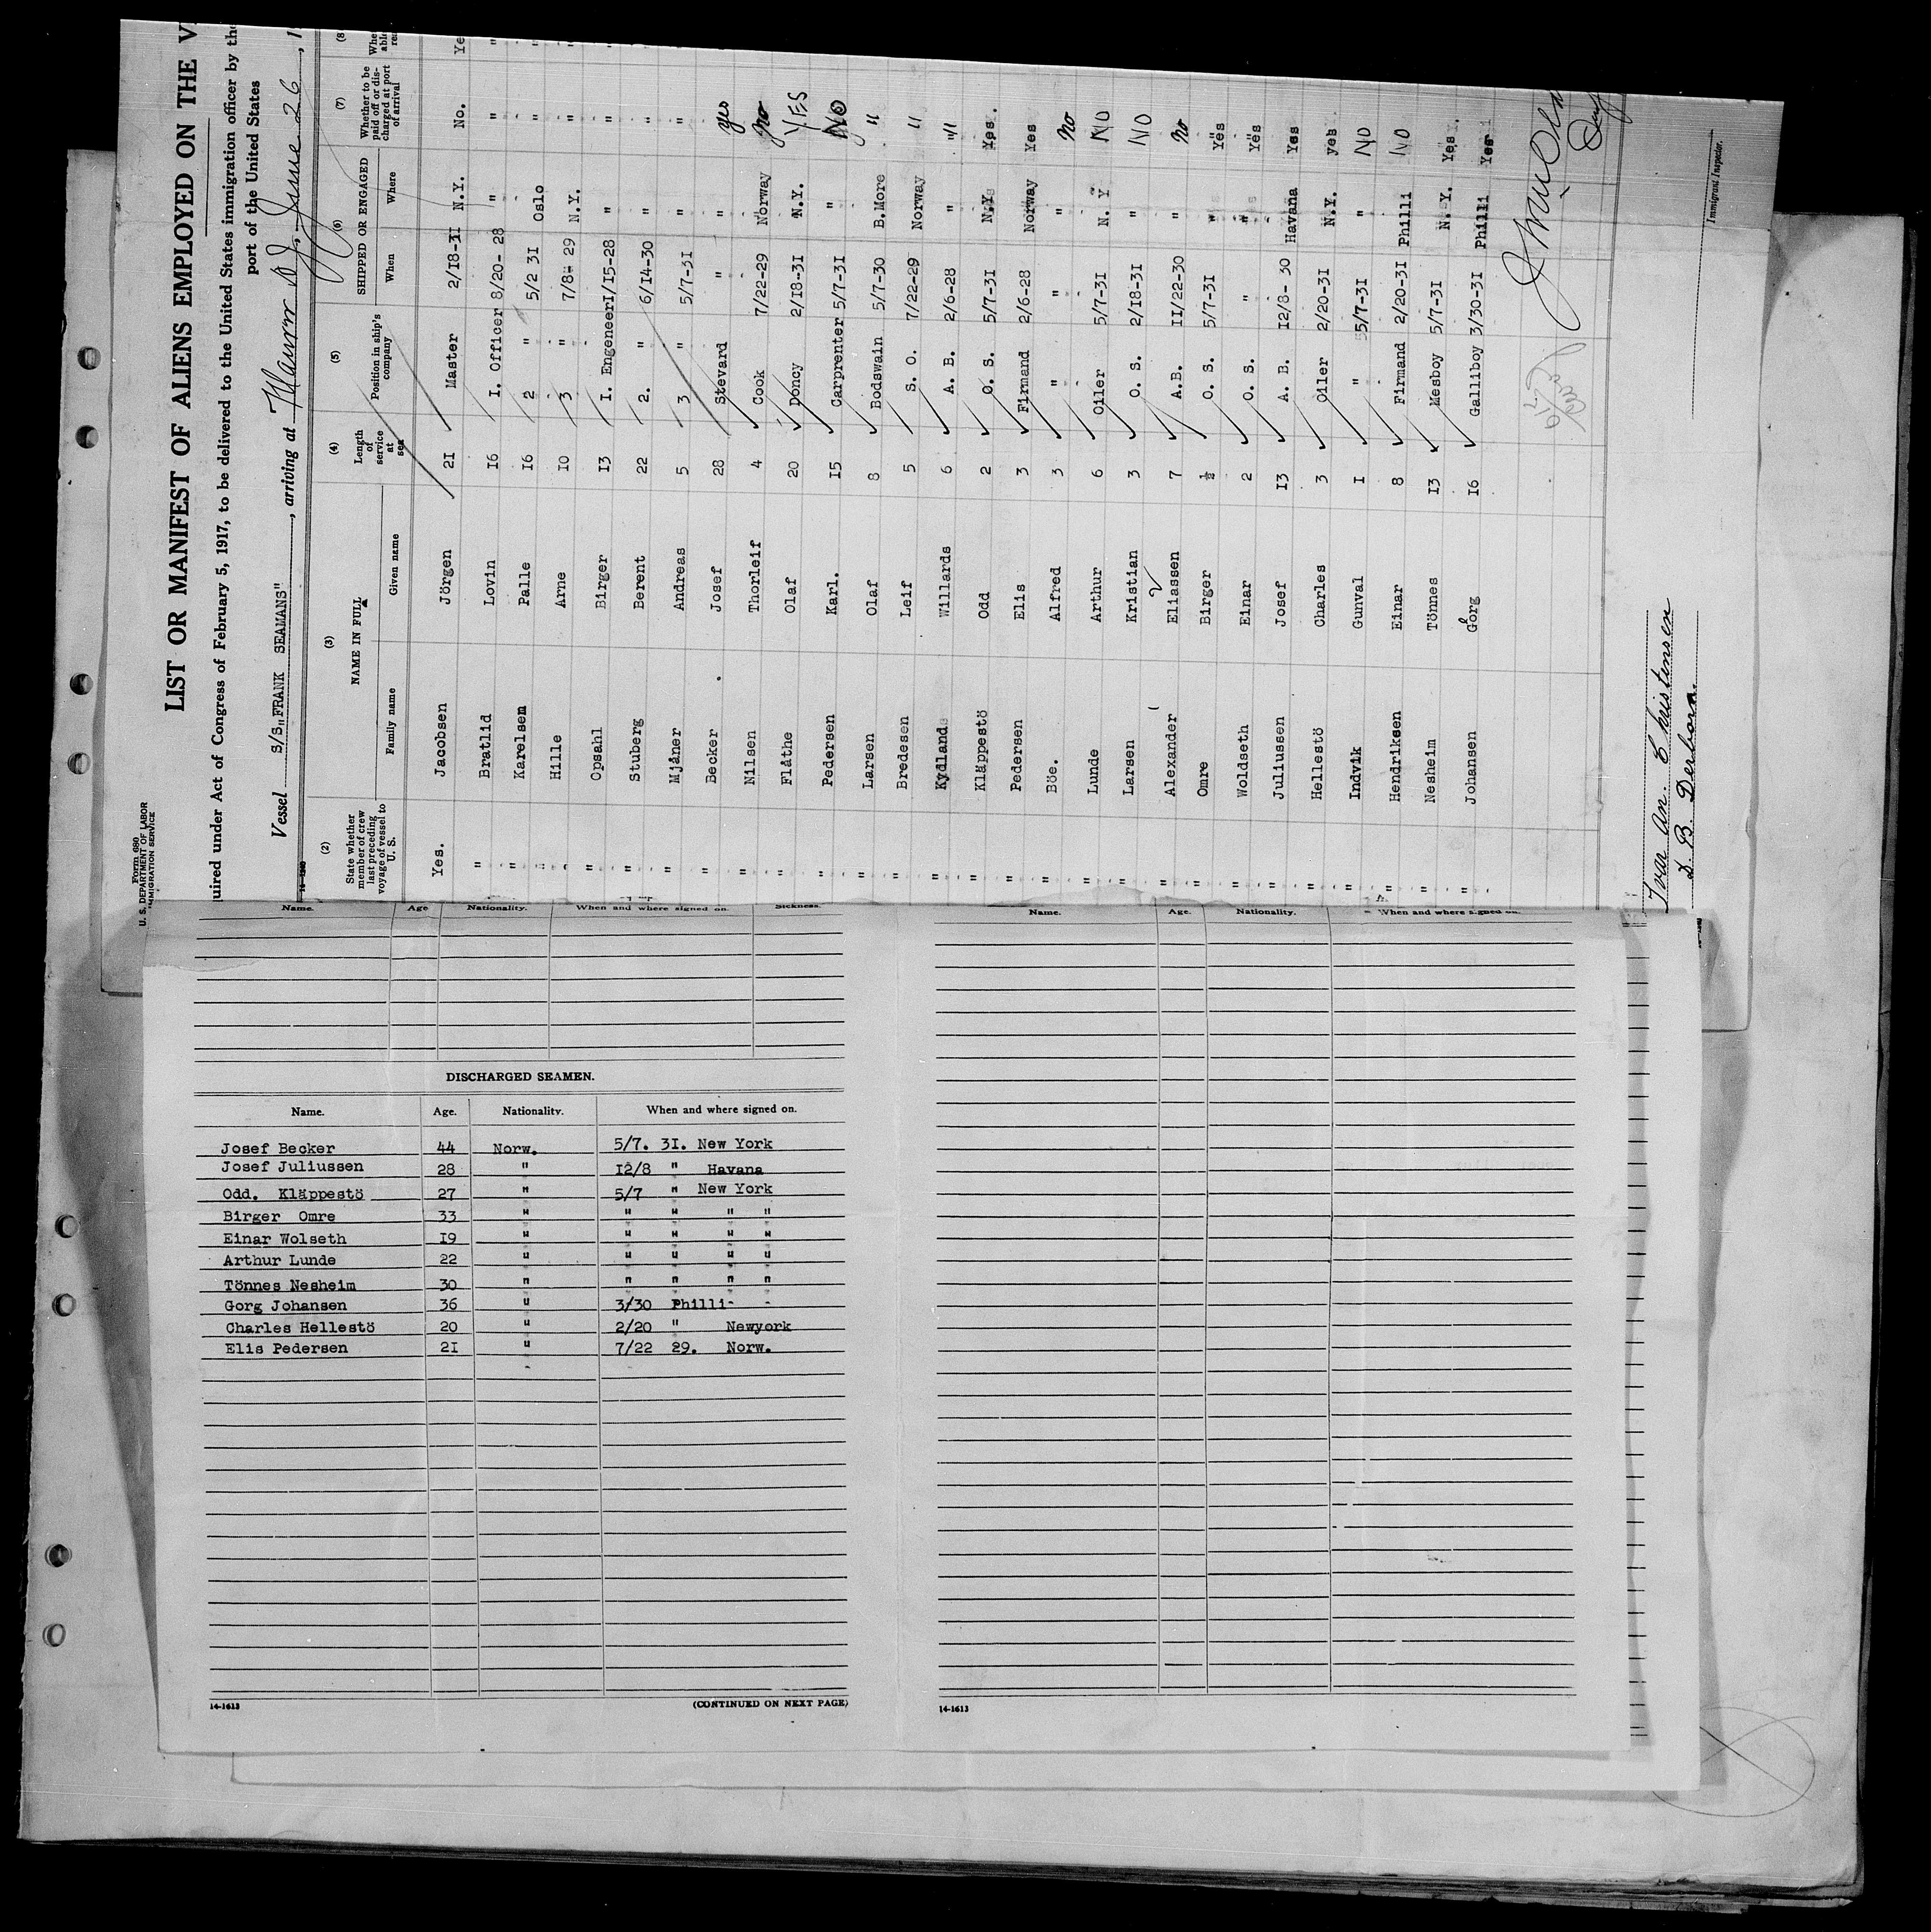 Form 680
U. S. DEPARTMENT OF LABOR
IMMIGRATION SERVICE
LIST OR MANIFEST OF ALIENS EMPLOYED ON THE V
uired under Act of Congress of February 5, 1917, to be delivered to the United States immigration officer by the
port of the United States
Vessel S/S „FRANK SEAMANS", arriving at June 26, 1
(2) (3) (4) (5) (6) (7) (8
State whether member of crew last preceding voyage of vessel to U. S. NAME IN FULL Length of service at sea Position in ship's company SHIPPED OR ENGAGED Whether to be paid off or discharged at port of arrival
Family name Given name When Where
Yes. Jacobsen Jörgen 21 Master 2/18-31 N.Y. No. Ye
" Bratlid Lovin 16 I. Officer 8/20- 28 " " "
" Karelsen Palle 16 2 " 5/2 31 Oslo " "
" Hille Arne 10 3 " 7/8- 29 N.Y. " "
" Opsahl Birger 13 I. Engeneer 1/15-28 " " "
" Stuberg Berent 22 2. " 6/14-30 " " "
" Mjåner Andreas 5 3 " 5/7-31 " "
" Becker Josef 28 Stevard " " yes
" Nilsen Thorleif 4 Cook 7/22-29 Norway no
" Flåthe Olaf 20 Doncy 2/18-31 N.Y. YES
" Pedersen Karl. 15 Carprenter 5/7-31 " No
" Larsen Olaf 8 Bodswain 5/7-30 B.More "
" Bredesen Leif 5 S. O. 7/22-29 Norway "
" Kydland Willards 6 A. B. 2/6-28 " "
" Kläppestö Odd 2 O. S. 5/7-31 N.Y. Yes.
" Pedersen Elis 3 Firmand 2/6-28 Norway Yes
" Böe. Alfred 3 " " " no
" Lunde Arthur 6 Oiler 5/7-31 N. Y NO
" Larsen Kristian 3 O. S. 2/18-31 " NO
" Alexander Eliassen 7 A.B. 11/22-30 " no
" Omre Birger ½ O. S. 5/7-31 " Yes
" Woldseth Einar 2 O. S. " " Yes
" Juliussen Josef 13 A. B. 12/8- 30 Havana Yes
" Hellestö Charles 3 Oiler 2/20-31 N.Y. yes
" Indvik Gunval 1 " 5/7-31 " NO
" Hendriksen Einar 8 Firmand 2/20-31 Philli NO
" Nesheim Tönnes 13 Mesboy 5/7-31 N.Y. Yes.
" Johansen Gorg 16 Galliboy 3/30-31 Philli Yes
Ivar An. Christensen
D. B. Derborn.
Immigrant Inspector.
Name. Age Nationality. When and where signed on. Sickness.
DISCHARGED SEAMEN.
Name. Age. Nationality. When and where signed on.
Josef Becker 44 Norw. 5/7. 31. New York
Josef Juliussen 28 " 12/8 " Havana
Odd. Kläppestö 27 " 5/7 " New York
Birger Omre 33 " " " " "
Einar Wolseth 19 " " " " "
Arthur Lunde 22 " " " " "
Tönnes Nesheim 30 " " " " "
Gorg Johansen 36 " 3/30 Philli- -
Charles Hellestö 20 " 2/20 " Newyork
Elis Pedersen 21 " 7/22 29. Norw.
14-1613 (CONTINUED ON NEXT PAGE)
Name. Age. Nationality. When and where signed on.
14-1613